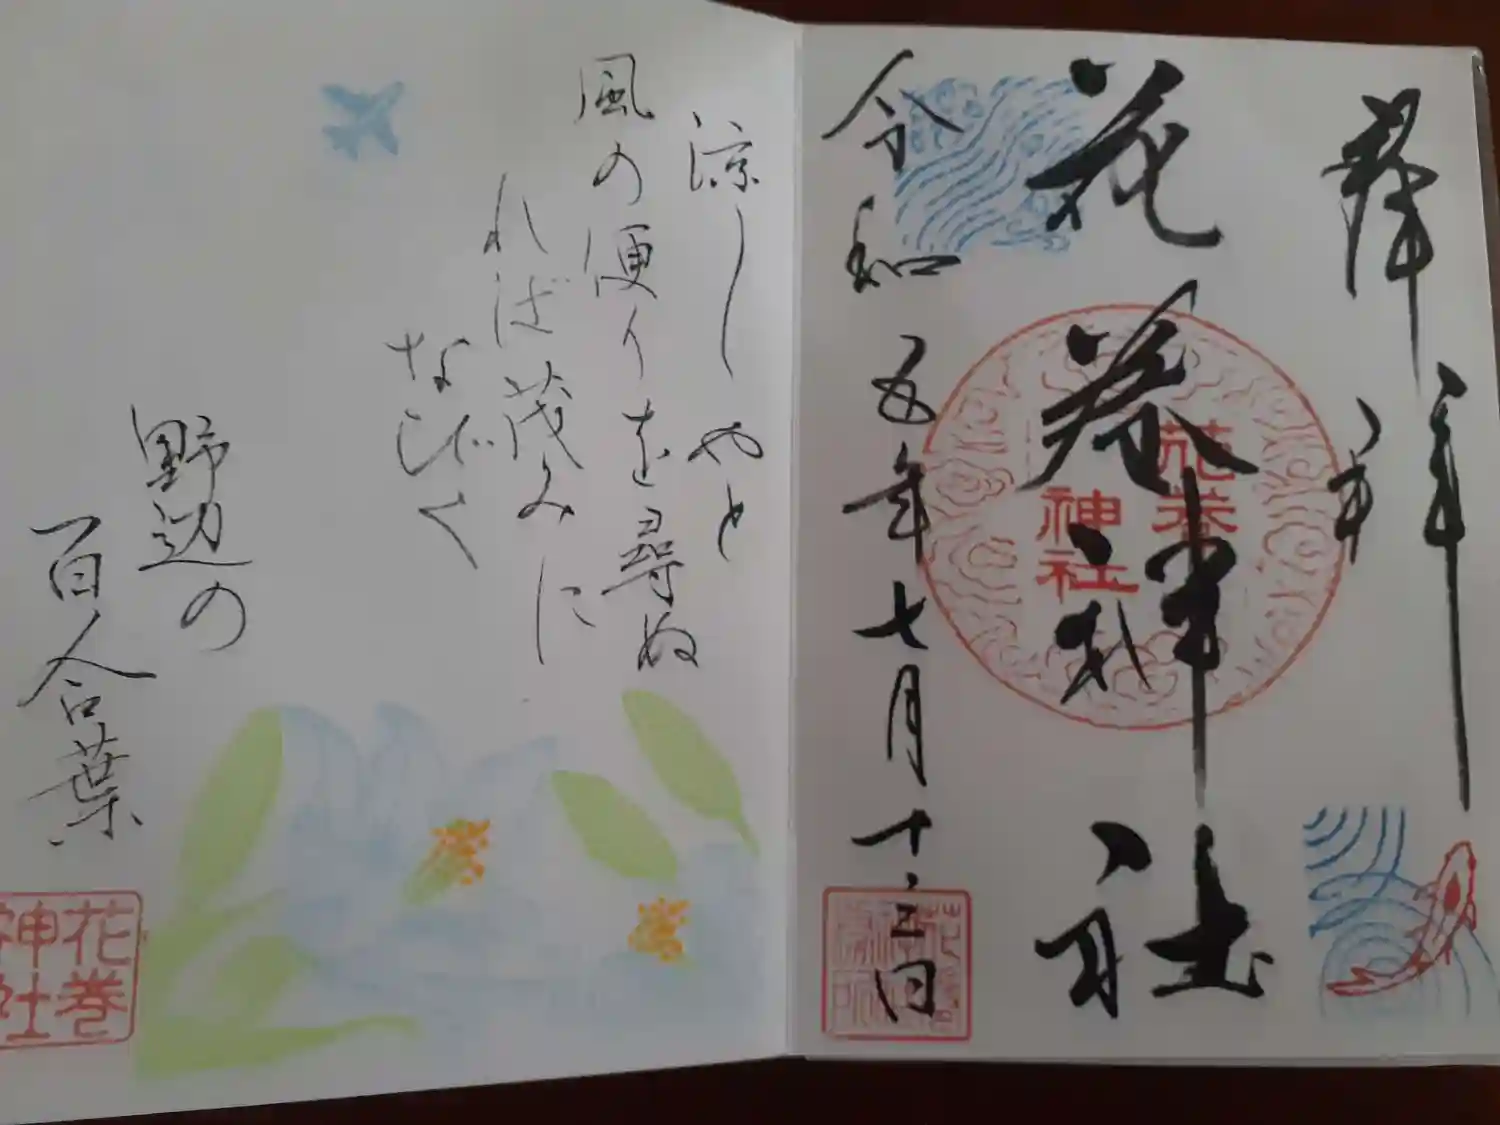 奉拝
花巻神社
花巻
神社
令和五年七月十三日
涼しやと
風の便りを尋ぬ
れば茂みに
なびく
野辺の
百合葉
花巻
神社